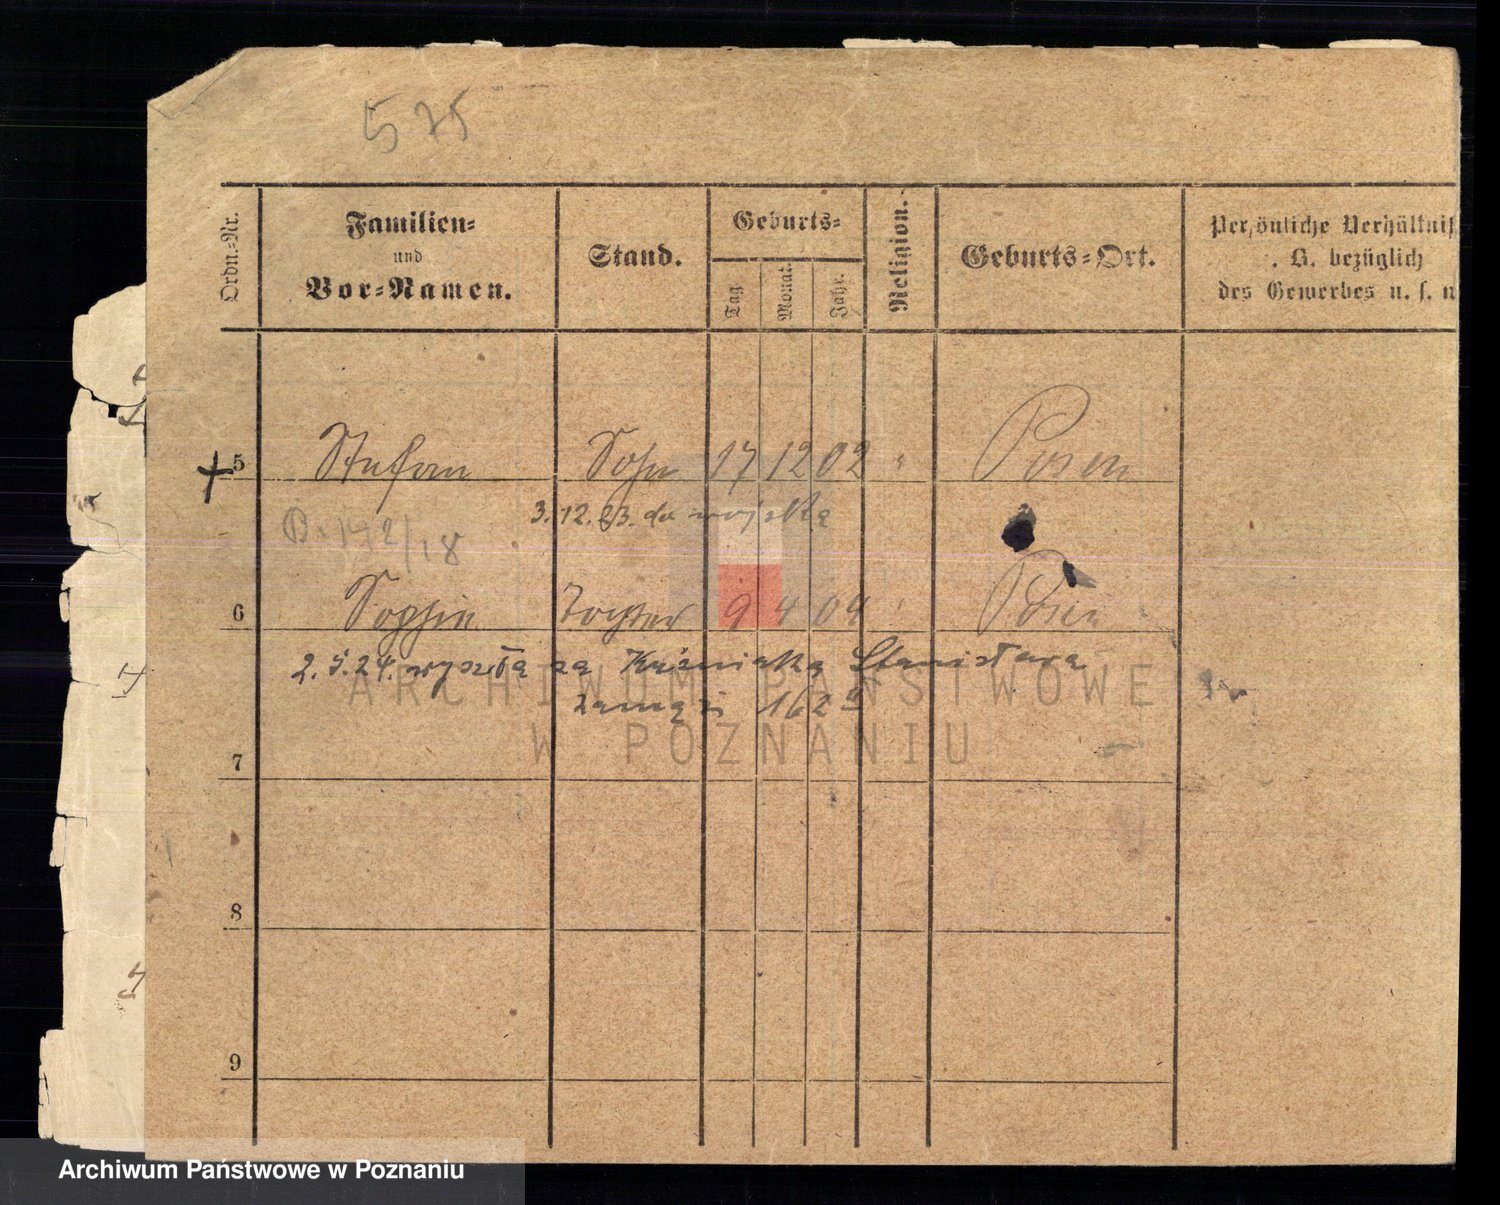 575
Ordn.-Nr.
Familien- und Vor-Namen.
Stand.
Geburts-
Tag. Monat. Jahr.
Religion.
Geburts-Ort.
Persönliche Verhältniss
. B. bezüglich
des Gewerbes u. s. w
5 Stefan Sohn 17 12 02 " Posen
3.12.23. do wojska
172/18
6 Sophie Tochter 9 4 04 " Posen
2.5.24. wyszła za Kuźniaka Stanisława
zamąż 1623
ARCHIWUM PAŃSTWOWE
W POZNANIU
7
8
9
Archiwum Państwowe w Poznaniu